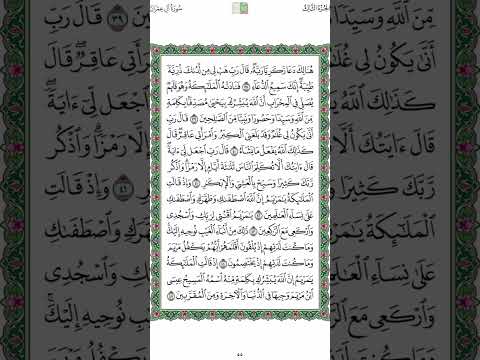 سُورَةُ آلِ عِمْرَانَ
الجُزْءُ الثَّالِثُ
هُنَالِكَ دَعَا زَكَرِيَّا رَبَّهُۥ قَالَ رَبِّ هَبْ لِي مِن لَّدُنكَ ذُرِّيَّةً
طَيِّبَةً إِنَّكَ سَمِيعُ ٱلدُّعَآءِ ٣٨ فَنَادَتْهُ ٱلْمَلَٰٓئِكَةُ وَهُوَ قَآئِمٌ
يُصَلِّي فِي ٱلْمِحْرَابِ أَنَّ ٱللَّهَ يُبَشِّرُكَ بِيَحْيَىٰ مُصَدِّقًۢا بِكَلِمَةٍ
مِّنَ ٱللَّهِ وَسَيِّدًا وَحَصُورًا وَنَبِيًّا مِّنَ ٱلصَّٰلِحِينَ ٣٩ قَالَ رَبِّ
أَنَّىٰ يَكُونُ لِي غُلَٰمٌ وَقَدْ بَلَغَنِيَ ٱلْكِبَرُ وَٱمْرَأَتِي عَاقِرٌ قَالَ
كَذَٰلِكَ ٱللَّهُ يَفْعَلُ مَا يَشَآءُ ٤٠ قَالَ رَبِّ ٱجْعَل لِّيٓ ءَايَةً
قَالَ ءَايَتُكَ أَلَّا تُكَلِّمَ ٱلنَّاسَ ثَلَٰثَةَ أَيَّامٍ إِلَّا رَمْزًا وَٱذْكُر
رَّبَّكَ كَثِيرًا وَسَبِّحْ بِٱلْعَشِيِّ وَٱلْإِبْكَٰرِ ٤١ وَإِذْ قَالَتِ
ٱلْمَلَٰٓئِكَةُ يَٰمَرْيَمُ إِنَّ ٱللَّهَ ٱصْطَفَىٰكِ وَطَهَّرَكِ وَٱصْطَفَىٰكِ
عَلَىٰ نِسَآءِ ٱلْعَٰلَمِينَ ٤٢ يَٰمَرْيَمُ ٱقْنُتِي لِرَبِّكِ وَٱسْجُدِي
وَٱرْكَعِي مَعَ ٱلرَّٰكِعِينَ ٤٣ ذَٰلِكَ مِنْ أَنۢبَآءِ ٱلْغَيْبِ نُوحِيهِ إِلَيْكَ
وَمَا كُنتَ لَدَيْهِمْ إِذْ يُلْقُونَ أَقْلَٰمَهُمْ أَيُّهُمْ يَكْفُلُ مَرْيَمَ
وَمَا كُنتَ لَدَيْهِمْ إِذْ يَخْتَصِمُونَ ٤٤ إِذْ قَالَتِ ٱلْمَلَٰٓئِكَةُ
يَٰمَرْيَمُ إِنَّ ٱللَّهَ يُبَشِّرُكِ بِكَلِمَةٍ مِّنْهُ ٱسْمُهُ ٱلْمَسِيحُ عِيسَى
ٱبْنُ مَرْيَمَ وَجِيهًا فِي ٱلدُّنْيَا وَٱلْأٓخِرَةِ وَمِنَ ٱلْمُقَرَّبِينَ ٤٥
٥٥